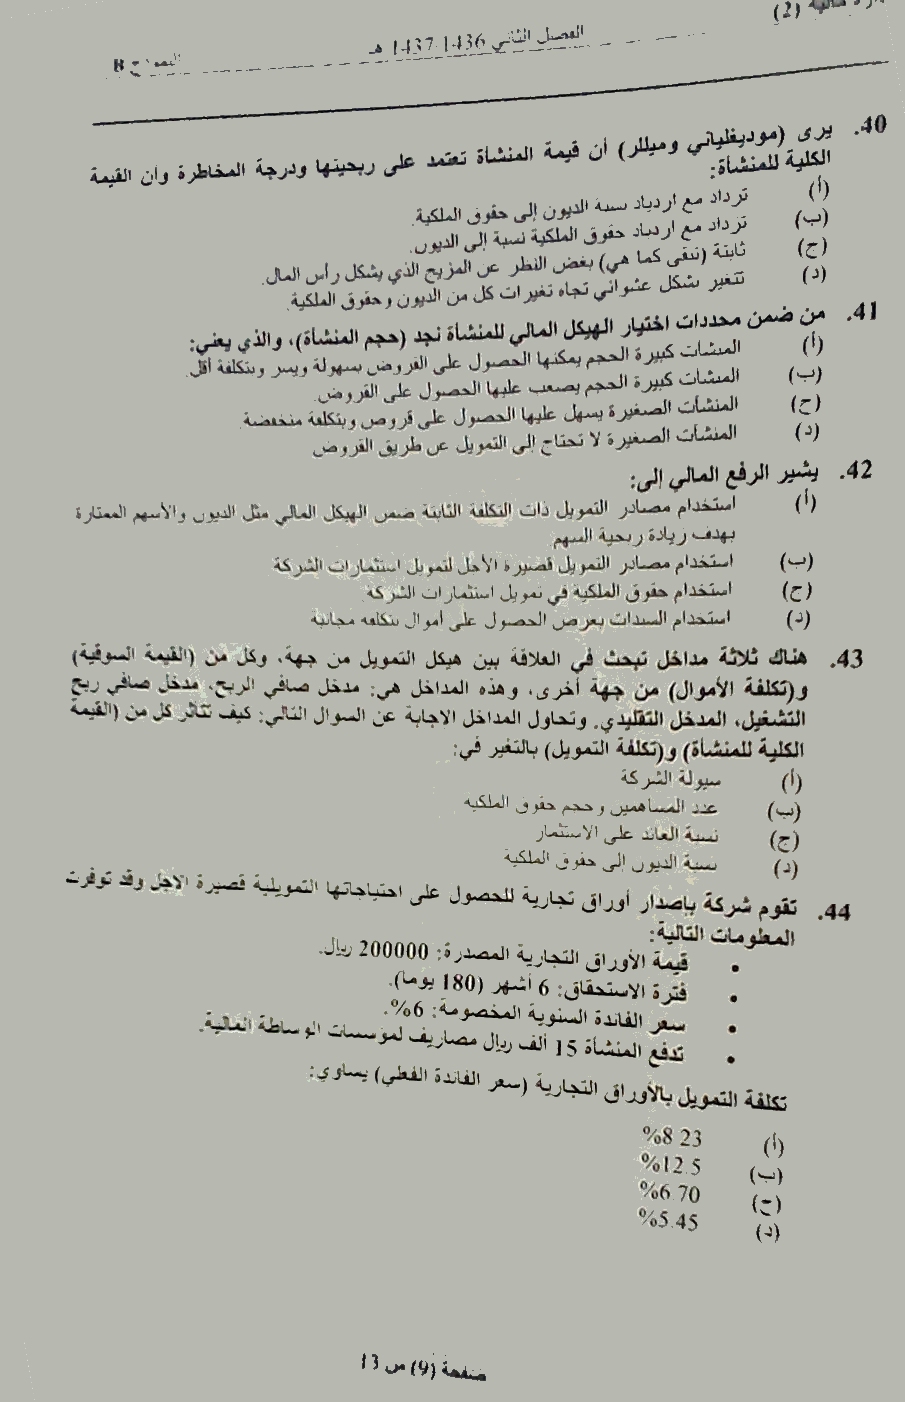 (2)
الفصل الثاني 1436-1437 هـ
النموذج B
40. يرى (موديغلياني وميللر) أن قيمة المنشأة تعتمد على ربحيتها ودرجة المخاطرة وأن القيمة
الكلية للمنشأة:
(أ) تزداد مع ازدياد نسبة الديون إلى حقوق الملكية.
(ب) تزداد مع ازدياد حقوق الملكية نسبة إلى الديون.
(ج) ثابتة (تبقى كما هي) بغض النظر عن المزيج الذي يشكل رأس المال.
(د) تتغير بشكل عشوائي تجاه تغيرات كل من الديون وحقوق الملكية.
41. من ضمن محددات اختيار الهيكل المالي للمنشأة نجد (حجم المنشأة)، والذي يعني:
(أ) المنشآت كبيرة الحجم يمكنها الحصول على القروض بسهولة ويسر وبتكلفة أقل.
(ب) المنشآت كبيرة الحجم يصعب عليها الحصول على القروض.
(ج) المنشآت الصغيرة يسهل عليها الحصول على قروض وبتكلفة منخفضة.
(د) المنشآت الصغيرة لا تحتاج إلى التمويل عن طريق القروض
42. يشير الرفع المالي إلى:
(أ) استخدام مصادر التمويل ذات التكلفة الثابتة ضمن الهيكل المالي مثل الديون والأسهم الممتازة
بهدف زيادة ربحية السهم
(ب) استخدام مصادر التمويل قصيرة الأجل لتمويل استثمارات الشركة
(ج) استخدام حقوق الملكية في تمويل استثمارات الشركة
(د) استخدام السندات بغرض الحصول على أموال بتكلفة مجانية
43. هناك ثلاثة مداخل تبحث في العلاقة بين هيكل التمويل من جهة، وكل من (القيمة السوقية)
و(تكلفة الأموال) من جهة أخرى، وهذه المداخل هي: مدخل صافي الربح، مدخل صافي ربح
التشغيل، المدخل التقليدي. وتحاول المداخل الإجابة عن السؤال التالي: كيف تتأثر كل من (القيمة
الكلية للمنشأة) و(تكلفة التمويل) بالتغير في:
(أ) سيولة الشركة
(ب) عدد المساهمين وحجم حقوق الملكية
(ج) نسبة العائد على الاستثمار
(د) نسبة الديون إلى حقوق الملكية
44. تقوم شركة بإصدار أوراق تجارية للحصول على احتياجاتها التمويلية قصيرة الأجل وقد توفرت
المعلومات التالية:
• قيمة الأوراق التجارية المصدرة: 200000 ريال.
• فترة الاستحقاق: 6 أشهر (180 يوما).
• سعر الفائدة السنوية المخصومة: 6%.
• تدفع المنشأة 15 ألف ريال مصاريف لمؤسسات الوساطة المالية.
تكلفة التمويل بالأوراق التجارية (سعر الفائدة الفعلي) يساوي:
(أ) 8.23%
(ب) 12.5%
(ج) 6.70%
(د) 5.45%
صفحة (9) من 13